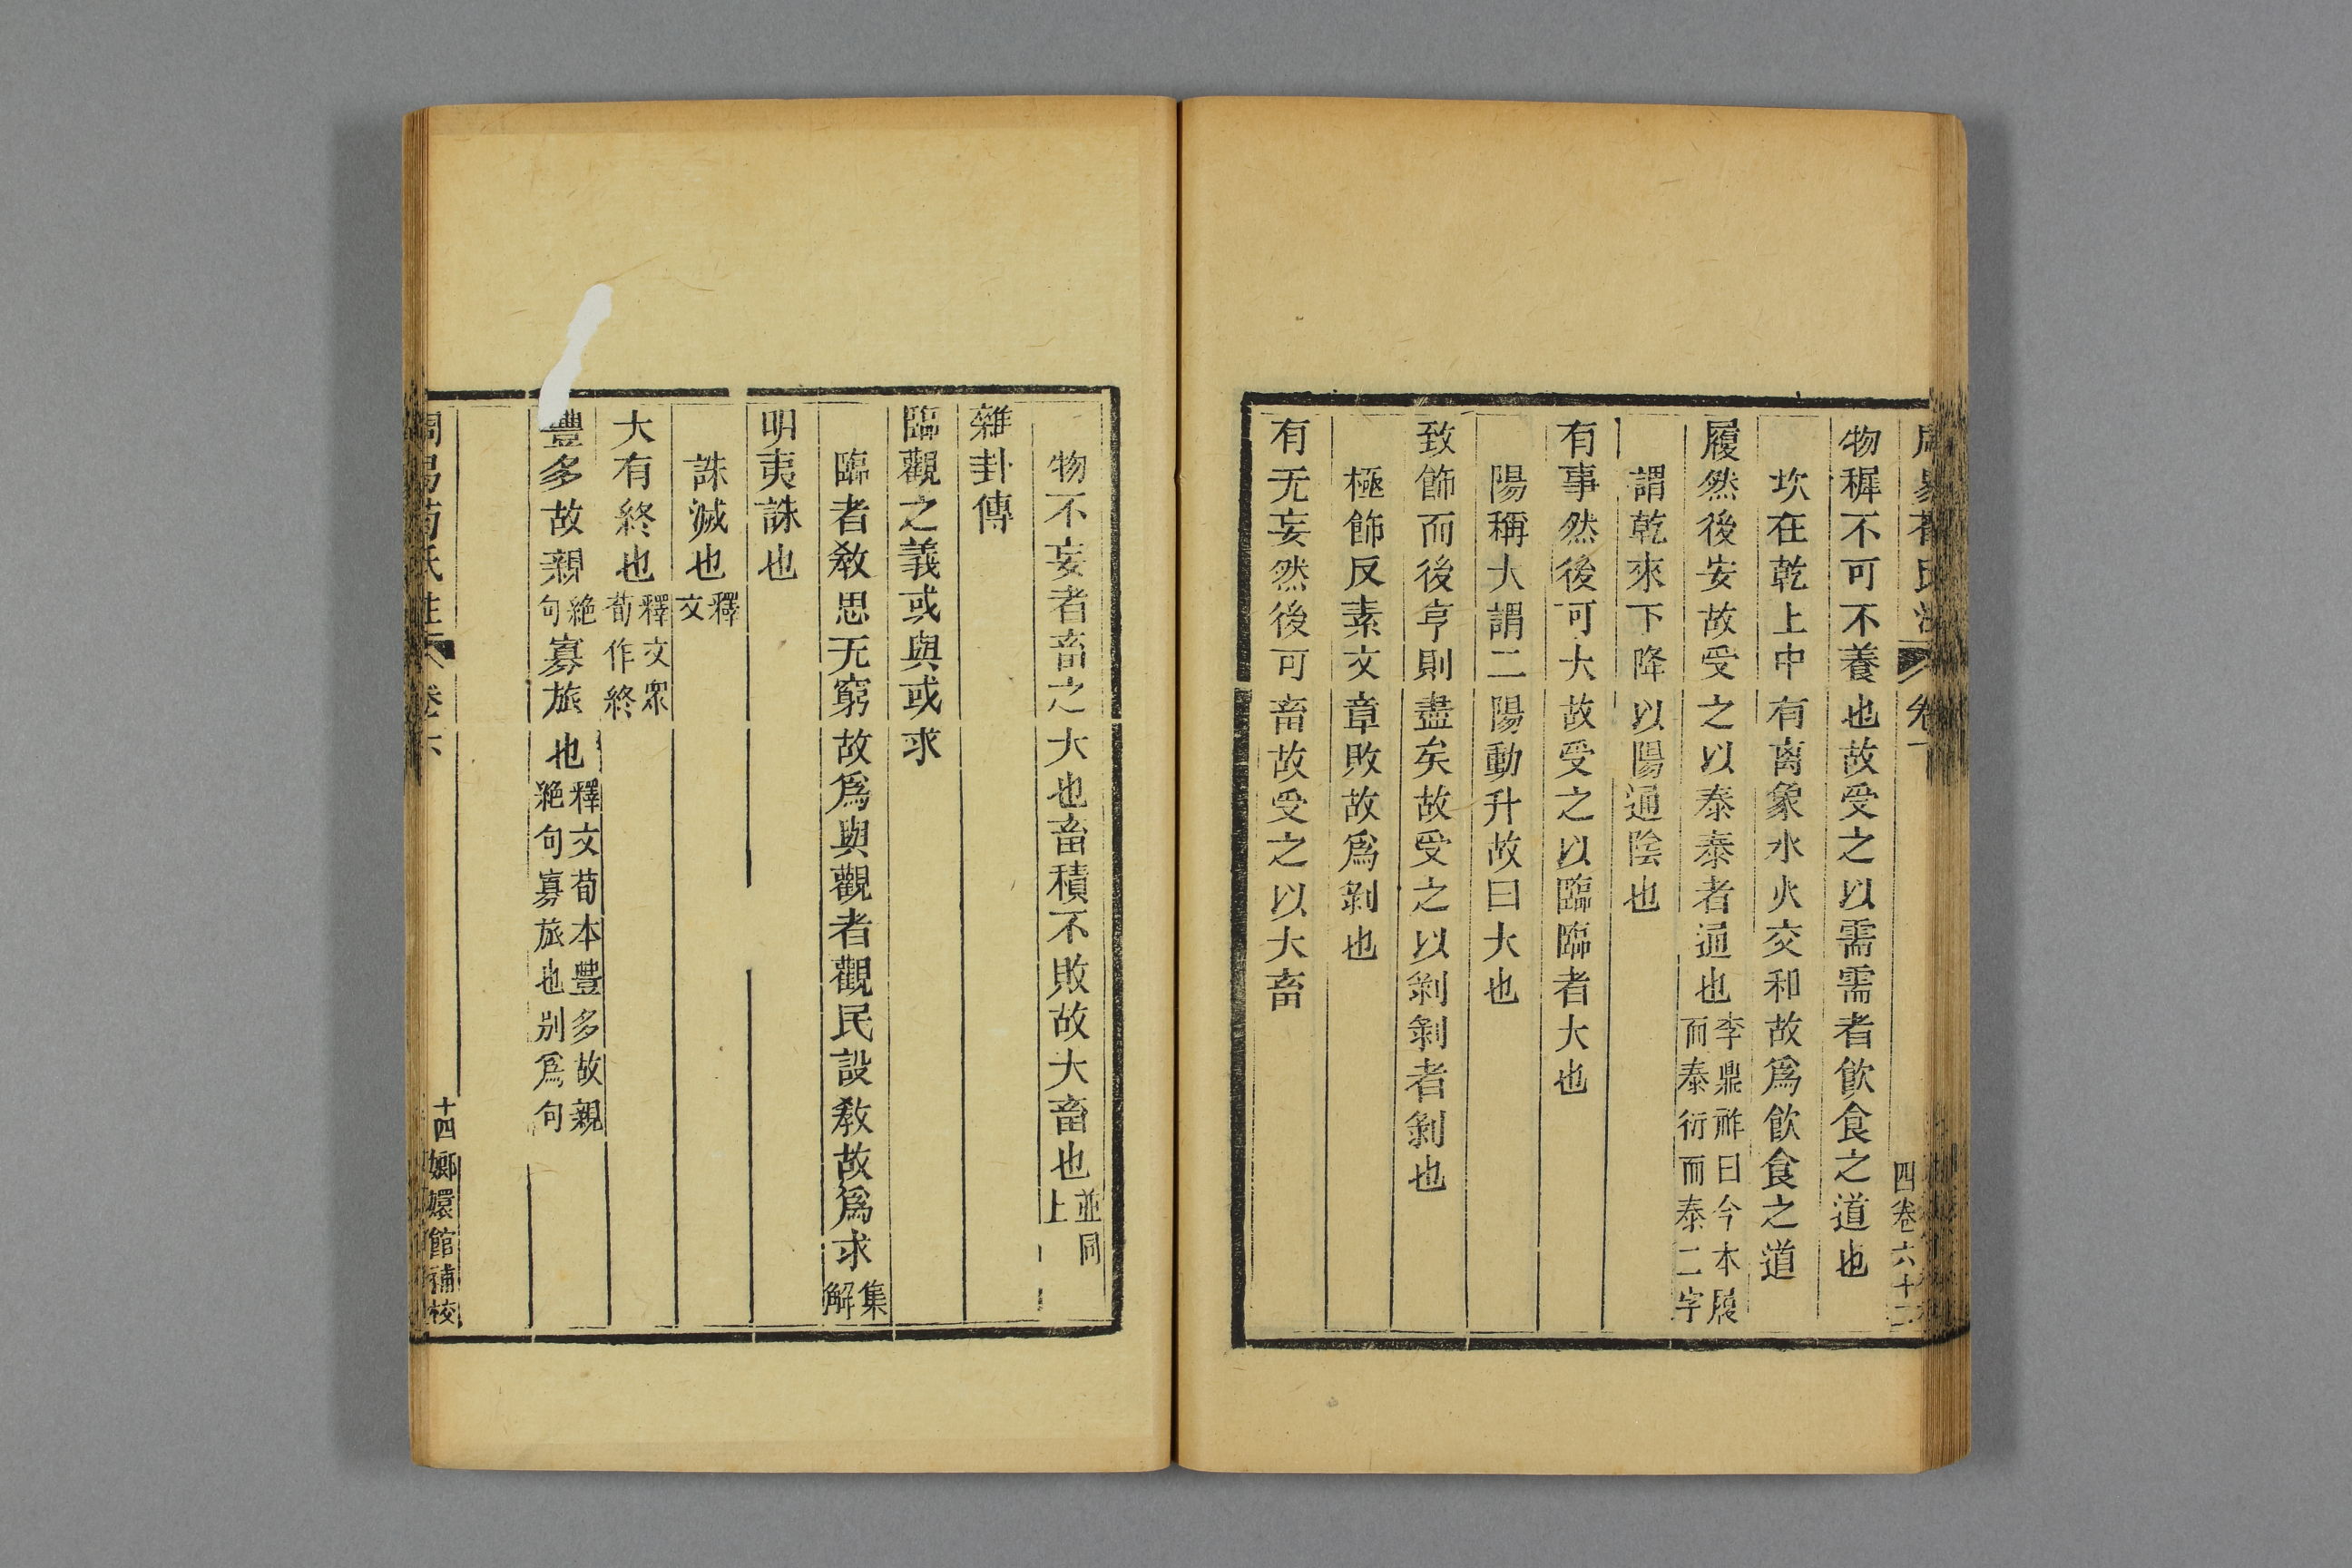 物穉不可不養也故受之以需需者飲食之道也
坎在乾上中有离象水火交和故爲飲食之道
履然後安故受之以泰泰者通也李鼎祚曰今本履
而泰衍而泰二字
謂乾來下降以陽通陰也
有事然後可大故受之以臨臨者大也
陽稱大謂二陽動升故曰大也
致飾而後亨則盡矣故受之以剝剝者剝也
極飾反素文章敗故爲剝也
有无妄然後可畜故受之以大畜
四卷六十二
物不妄者畜之大也畜積不敗故大畜也並同
上
雜卦傳
臨觀之義或與或求
臨者敎思无窮故爲與觀者觀民設敎故爲求集
解
明夷誅也
誅滅也釋
文
大有終也釋文眾
荀作終
豐多故親絶
句寡旅也釋文荀本豐多故親
絶句寡旅也別爲句
周易荀氏注 卷六
十四嫏嬛館補校